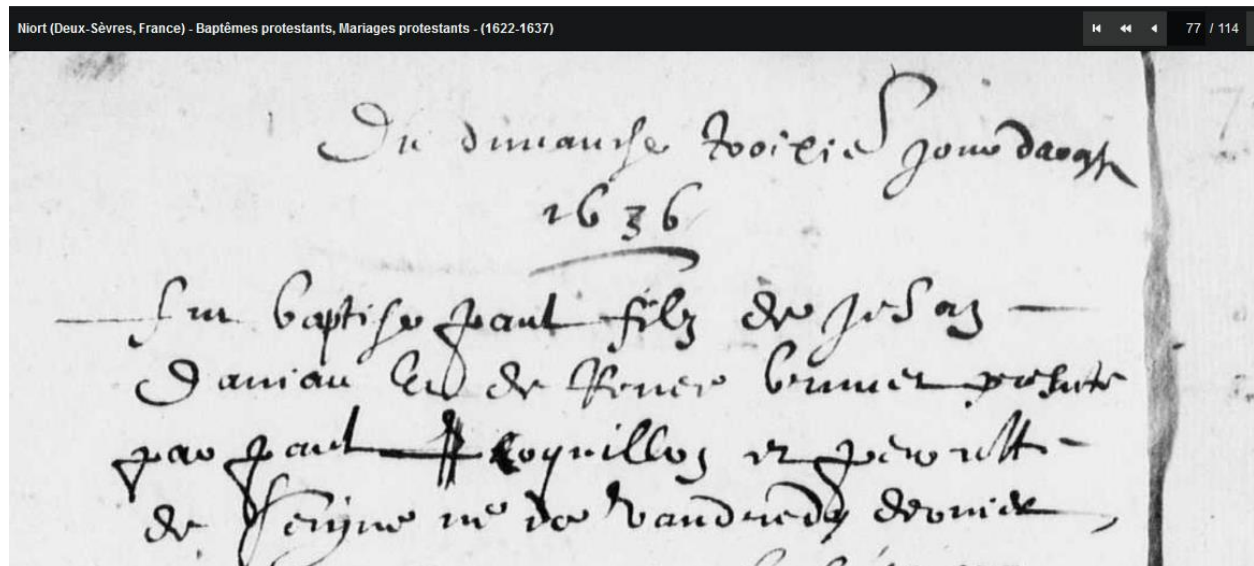 Niort (Deux-Sèvres, France) - Baptêmes protestants, Mariages protestants - (1622-1637)
77 / 114
Du dimanche troixie jour daougst
1636
Fut baptise paul filz de Jehan
Daniau et de Renee brunet presente
par paul Coquillon et perrette
de ne de vandredy dernier